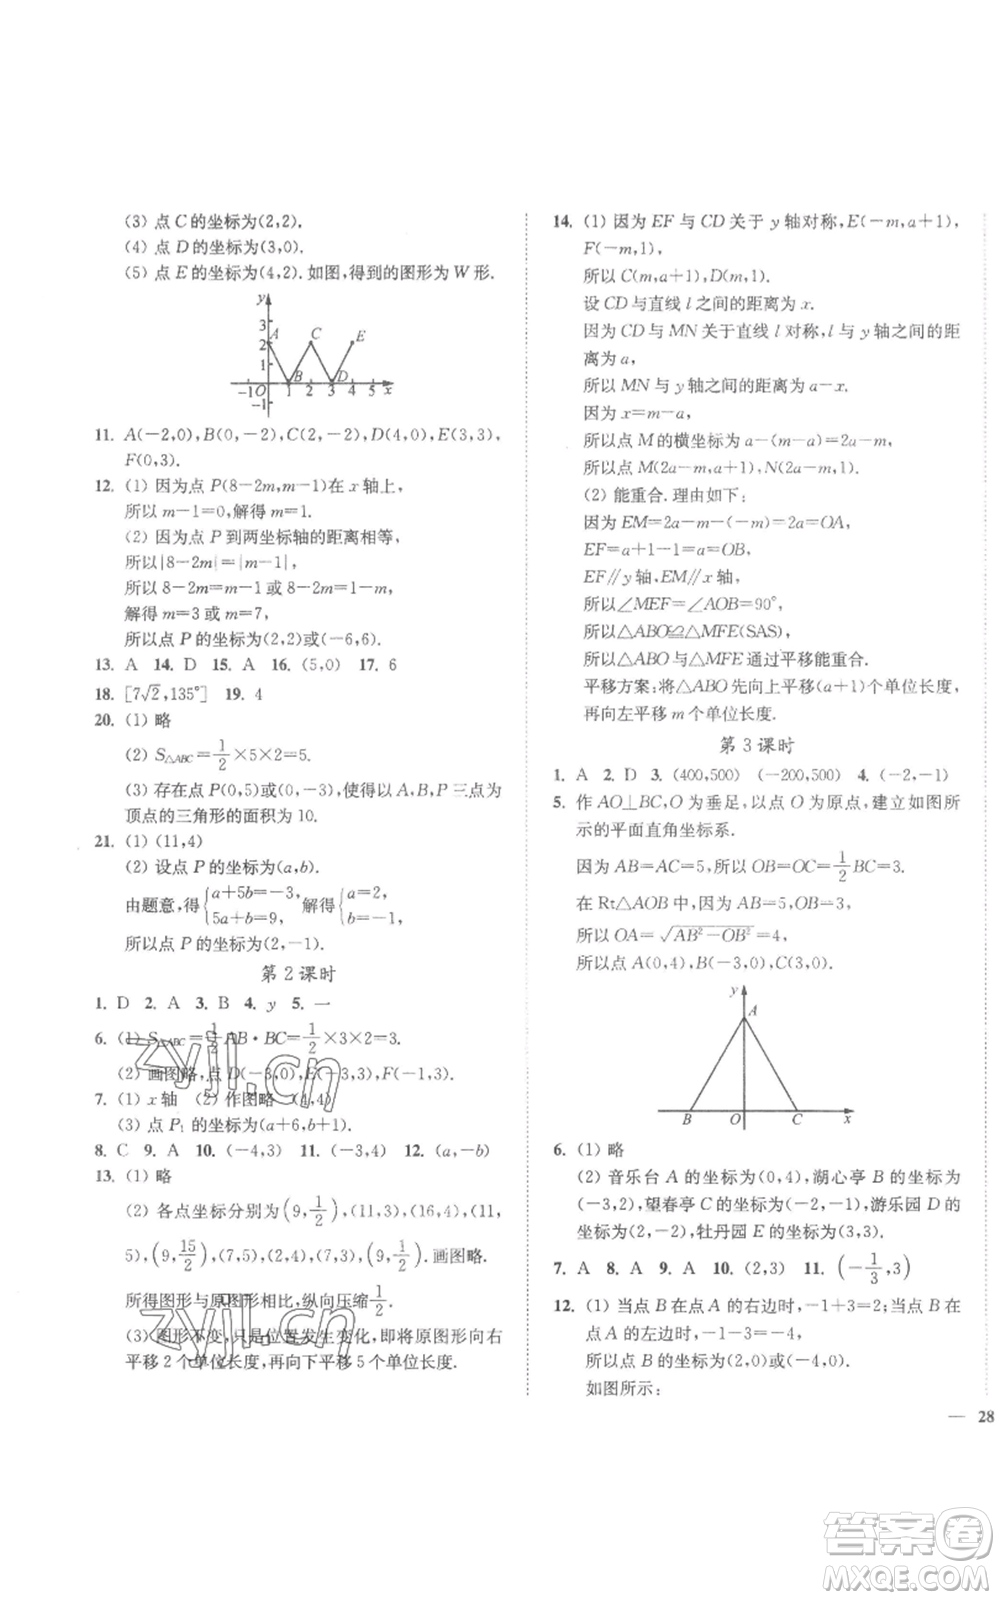 (3) 点 C 的坐标为(2,2).
(4) 点 D 的坐标为(3,0).
(5) 点 E 的坐标为(4,2). 如图,得到的图形为 W 形.
y
3
A C E
2
1
B D
-1 O 1 2 3 4 5 x
-1
11. A(-2,0),B(0,-2),C(2,-2),D(4,0),E(3,3),
F(0,3).
12. (1) 因为点 P(8-2m,m-1)在 x 轴上,
所以 m-1=0,解得 m=1.
(2) 因为点 P 到两坐标轴的距离相等,
所以|8-2m|=|m-1|,
所以 8-2m=m-1 或 8-2m=1-m,
解得 m=3 或 m=7,
所以点 P 的坐标为(2,2)或(-6,6).
13. A 14. D 15. A 16. (5,0) 17. 6
18. [7√2,135°] 19. 4
20. (1) 略
(2) S△ABC=1/2×5×2=5.
(3) 存在点 P(0,5)或(0,-3),使以 A,B,P 三点为
顶点的三角形的面积为 10.
21. (1) (11,4)
(2) 设点 P 的坐标为(a,b).
由题意,得{a+5b=-3, 5a+b=9, 解得{a=2, b=-1,
所以点 P 的坐标为(2,-1).
第 2 课时
1. D 2. A 3. B 4. y 5. 一
6. (1) S△ABC=1/2 AB·BC=1/2×3×2=3.
(2) 画图略,点 D(-3,0),E(-3,3),F(-1,3).
7. (1) x 轴 (2) 作图略 (4,4)
(3) 点 P₁ 的坐标为(a+6,b+3).
8. C 9. A 10. (-4,3) 11. (-3,4) 12. (a,-b)
13. (1) 略
(2) 各点坐标分别为(9,1/2),(11,3),(16,4),(11,
5),(9,15/2),(7,5),(2,4),(7,3),(9,1/2).画图略.
所得图形与原图形相比,纵向压缩1/2.
(3) 图形不变,只是位置发生变化,即将原图形向右
平移 2 个单位长度,再向下平移 5 个单位长度.
zyjl.cn
zyjl.cn
14. (1) 因为 EF 与 CD 关于 y 轴对称,E(-m,a+1),
F(-m,1),
所以 C(m,a+1),D(m,1).
设 CD 与直线 l 之间的距离为 x.
因为 CD 与 MN 关于直线 l 对称,l 与 y 轴之间的距
离为 a,
所以 MN 与 y 轴之间的距离为 a-x.
因为 x=m-a,
所以点 M 的横坐标为 a-(m-a)=2a-m,
所以点 M(2a-m,a+1),N(2a-m,1).
(2) 能重合.理由如下:
因为 EM=2a-m-(-m)=2a=OA,
EF=a+1-1=a=OB,
EF∥y 轴,EM∥x 轴,
所以∠MEF=∠AOB=90°,
所以△ABO≌△MFE(SAS),
所以△ABO 与△MFE 通过平移能重合.
平移方案:将△ABO 先向上平移(a+1)个单位长度,
再向左平移 m 个单位长度.
第 3 课时
1. A 2. D 3. (400,500) (-200,500) 4. (-2,-1)
5. 作 AO⊥BC,O 为垂足,以点 O 为原点,建立如图所
示的平面直角坐标系.
因为 AB=AC=5,所以 OB=OC=1/2 BC=3.
在 Rt△AOB 中,因为 AB=5,OB=3,
所以 OA=√(AB²-OB²)=4,
所以点 A(0,4),B(-3,0),C(3,0).
y
A
B O C x
6. (1) 略
(2) 音乐台 A 的坐标为(0,4),湖心亭 B 的坐标为
(-3,2),望春亭 C 的坐标为(-2,-1),游乐园 D 的
坐标为(2,-2),牡丹园 E 的坐标为(3,3).
7. A 8. A 9. A 10. (2,3) 11. (-1/3,3)
12. (1) 当点 B 在点 A 的右边时,-1+3=2;当点 B 在
点 A 的左边时,-1-3=-4,
所以点 B 的坐标为(2,0)或(-4,0).
如图所示:
— 28
答案卷
MXQE.COM